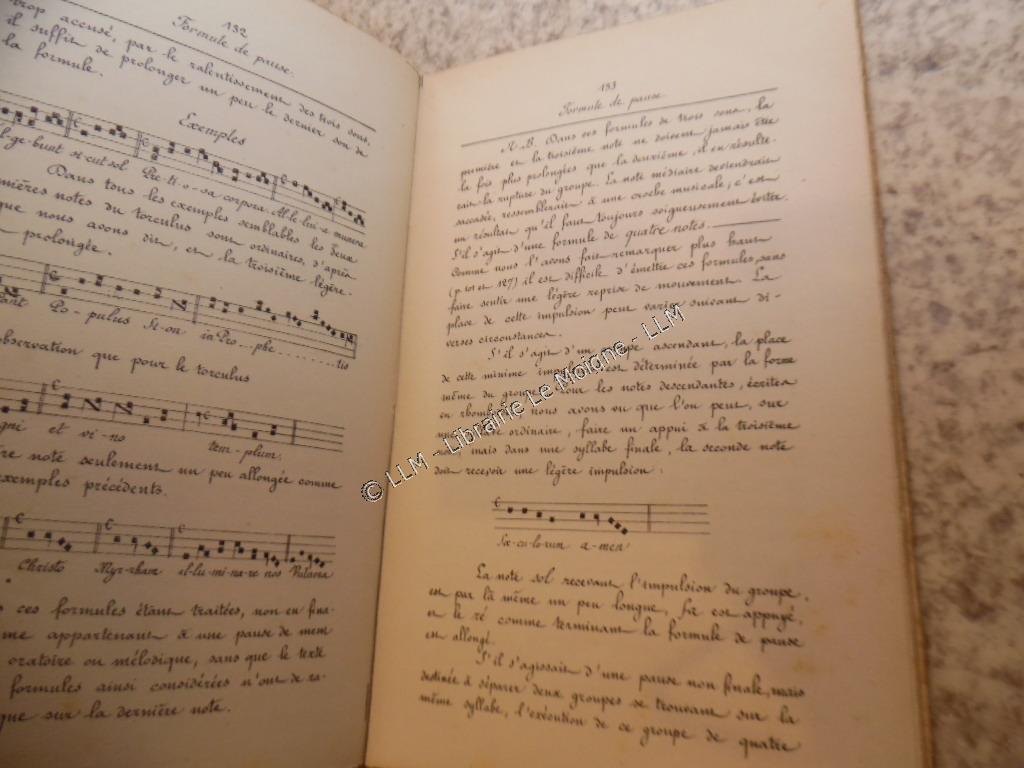 132
Formule de pause.
trop accusé, par le ralentissement des trois sons,
il suffit de prolonger un peu le dernier son de
la formule.
Exemples
ge-bunt si-cut sol Pre-ti-o-sa corpora. Al-le-lui-a
Dans tous les exemples semblables les deux
mières notes du torculus sont ordinaires, d'après
que nous avons dit, et la troisième légère-
prolongée.
Po-pulus Si-on in Pro-phe......tis
observation que pour le torculus
et vi-no tem-plum.
re note seulement un peu allongée comme
exemples précédents.
Christo Myr-rham il-lu-mi-na-re nos
ces formules étant traitées, non en fina-
me appartenant à une pause de mem
oratoire ou mélodique, sans que le texte
formules ainsi considérées n'ont de ra-
que sur la dernière note.
133
Formule de pause
N. B. Dans ces formules de trois sons, la
première et la troisième note ne doivent jamais être
la fois plus prolongées que la deuxième, il en résulte-
rait la rupture du groupe. La note médiaire deviendrait
saccadée, ressemblerait à une croche musicale; c'est
un résultat qu'il faut toujours soigneusement éviter.
S'il s'agit d'une formule de quatre notes.
Comme nous l'avons fait remarquer plus haut
(p. 101 et 127) il est difficile d'émettre ces formules, sans
faire sentir une légère reprise de mouvement. La
place de cette impulsion peut varier suivant di-
verses circonstances.
S'il s'agit d'un groupe ascendant, la place
de cette minime impulsion est déterminée par la forme
même du groupe. Pour les notes descendantes, écrites
en rhombes, nous avons vu que l'on peut, sur
une syllabe ordinaire, faire un appui à la troisième
note mais dans une syllabe finale, la seconde note
doit recevoir une légère impulsion:
Sæ-cu-lorum a-men
La note sol recevant l'impulsion du groupe,
est par là même un peu longue, fa est appuyé,
et le ré comme terminant la formule de pause
est allongé.
S'il s'agissait d'une pause non finale, mais
destinée à séparer deux groupes se trouvant sur la
même syllabe, l'exécution de ce groupe de quatre
© LLM - Librairie Le Moigne - LLM